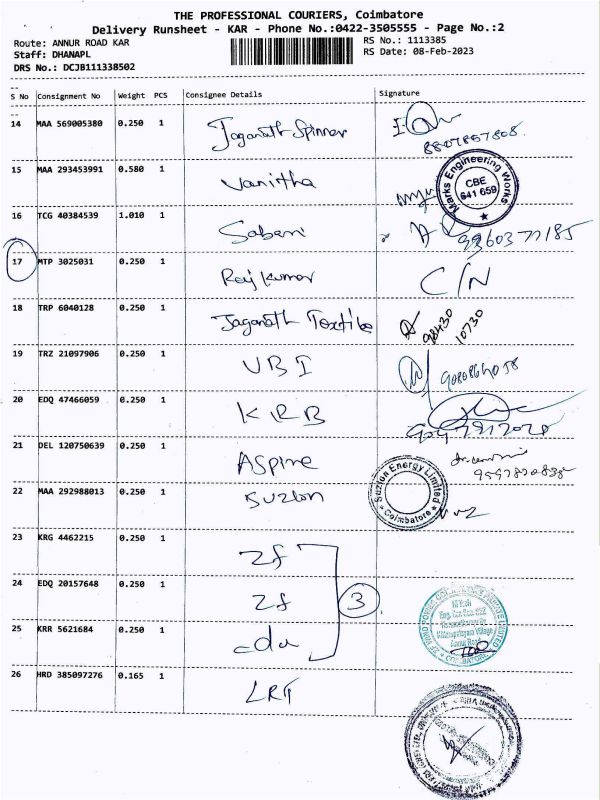 THE PROFESSIONAL COURIERS, Coimbatore
Delivery Runsheet - KAR - Phone No.:0422-3505555 - Page No.:2
Route: ANNUR ROAD KAR
Staff: DHANAPL
DRS No.: DCJB111338502
RS No.: 1113385
RS Date: 08-Feb-2023
S No Consignment No Weight PCS Consignee Details Signature
14 MAA 569005380 0.250 1 Jaganath Spinner
15 MAA 293453991 0.580 1 Vanitha
Marks Engineering Works
CBE
641 659
16 TCG 40384539 1.010 1 Sabari
17 MTP 3025031 0.250 1 Raj kumar C/N
18 TRP 6040128 0.250 1 Jaganath Textile 98430
10730
19 TRZ 21097906 0.250 1 UBI
20 EDQ 47466059 0.250 1 KRB
21 DEL 120750639 0.250 1 Aspire
22 MAA 292988013 0.250 1 Suzlon
Suzlon Energy Limited
Coimbatore
23 KRG 4462215 0.250 1 Zf
24 EDQ 20157648 0.250 1 Zf 3
25 KRR 5621684 0.250 1 cda
26 HRD 385097276 0.165 1 LRT